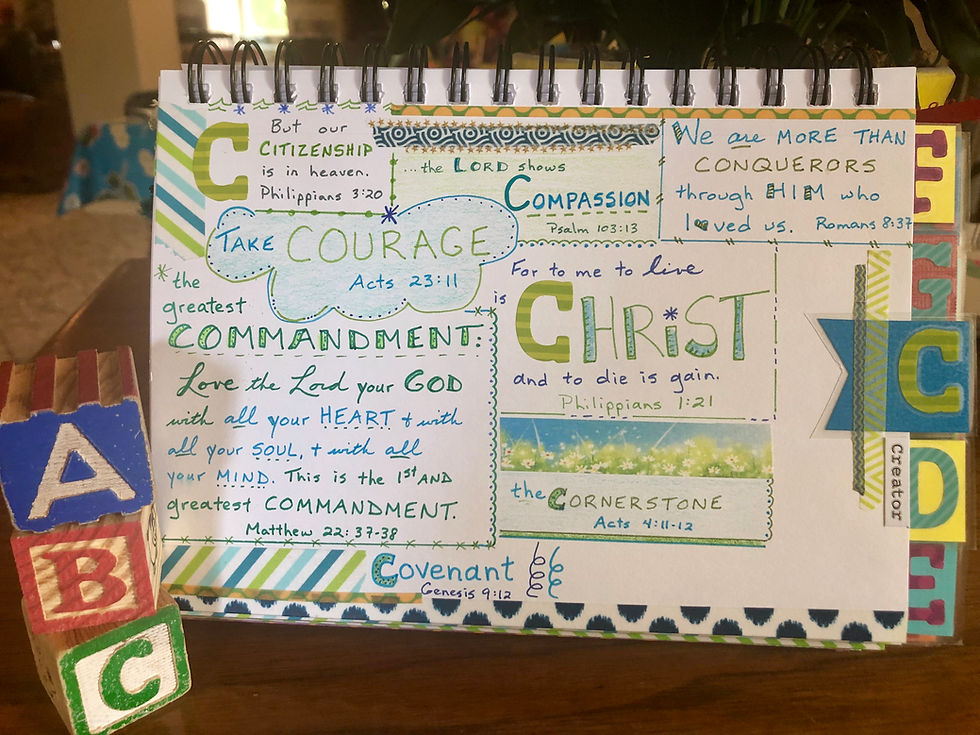 C
But our
CITIZENSHIP
is in heaven.
Philippians 3:20
...the LORD shows
COMPASSION
Psalm 103:13
We are MORE THAN
CONQUERORS
through HIM who
loved us. Romans 8:37
TAKE COURAGE
Acts 23:11
*the
greatest
COMMANDMENT:
Love the Lord your GOD
with all your HEART & with
all your SOUL, & with all
your MIND. This is the 1st AND
greatest COMMANDMENT.
Matthew 22:37-38
For to me to live
is
CHRiST
and to die is gain.
Philippians 1:21
the CORNERSTONE
Acts 4:11-12
Covenant
Genesis 9:12
C
Creator
D
E
A
B
C